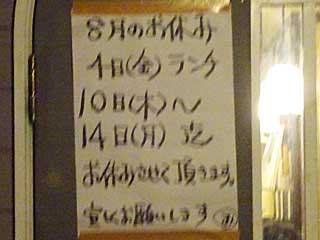 8月のお休み
4日(金)ランチ
10日(木)〜
14日(月)迄
お休みさせて頂きます。
宜しくお願いします